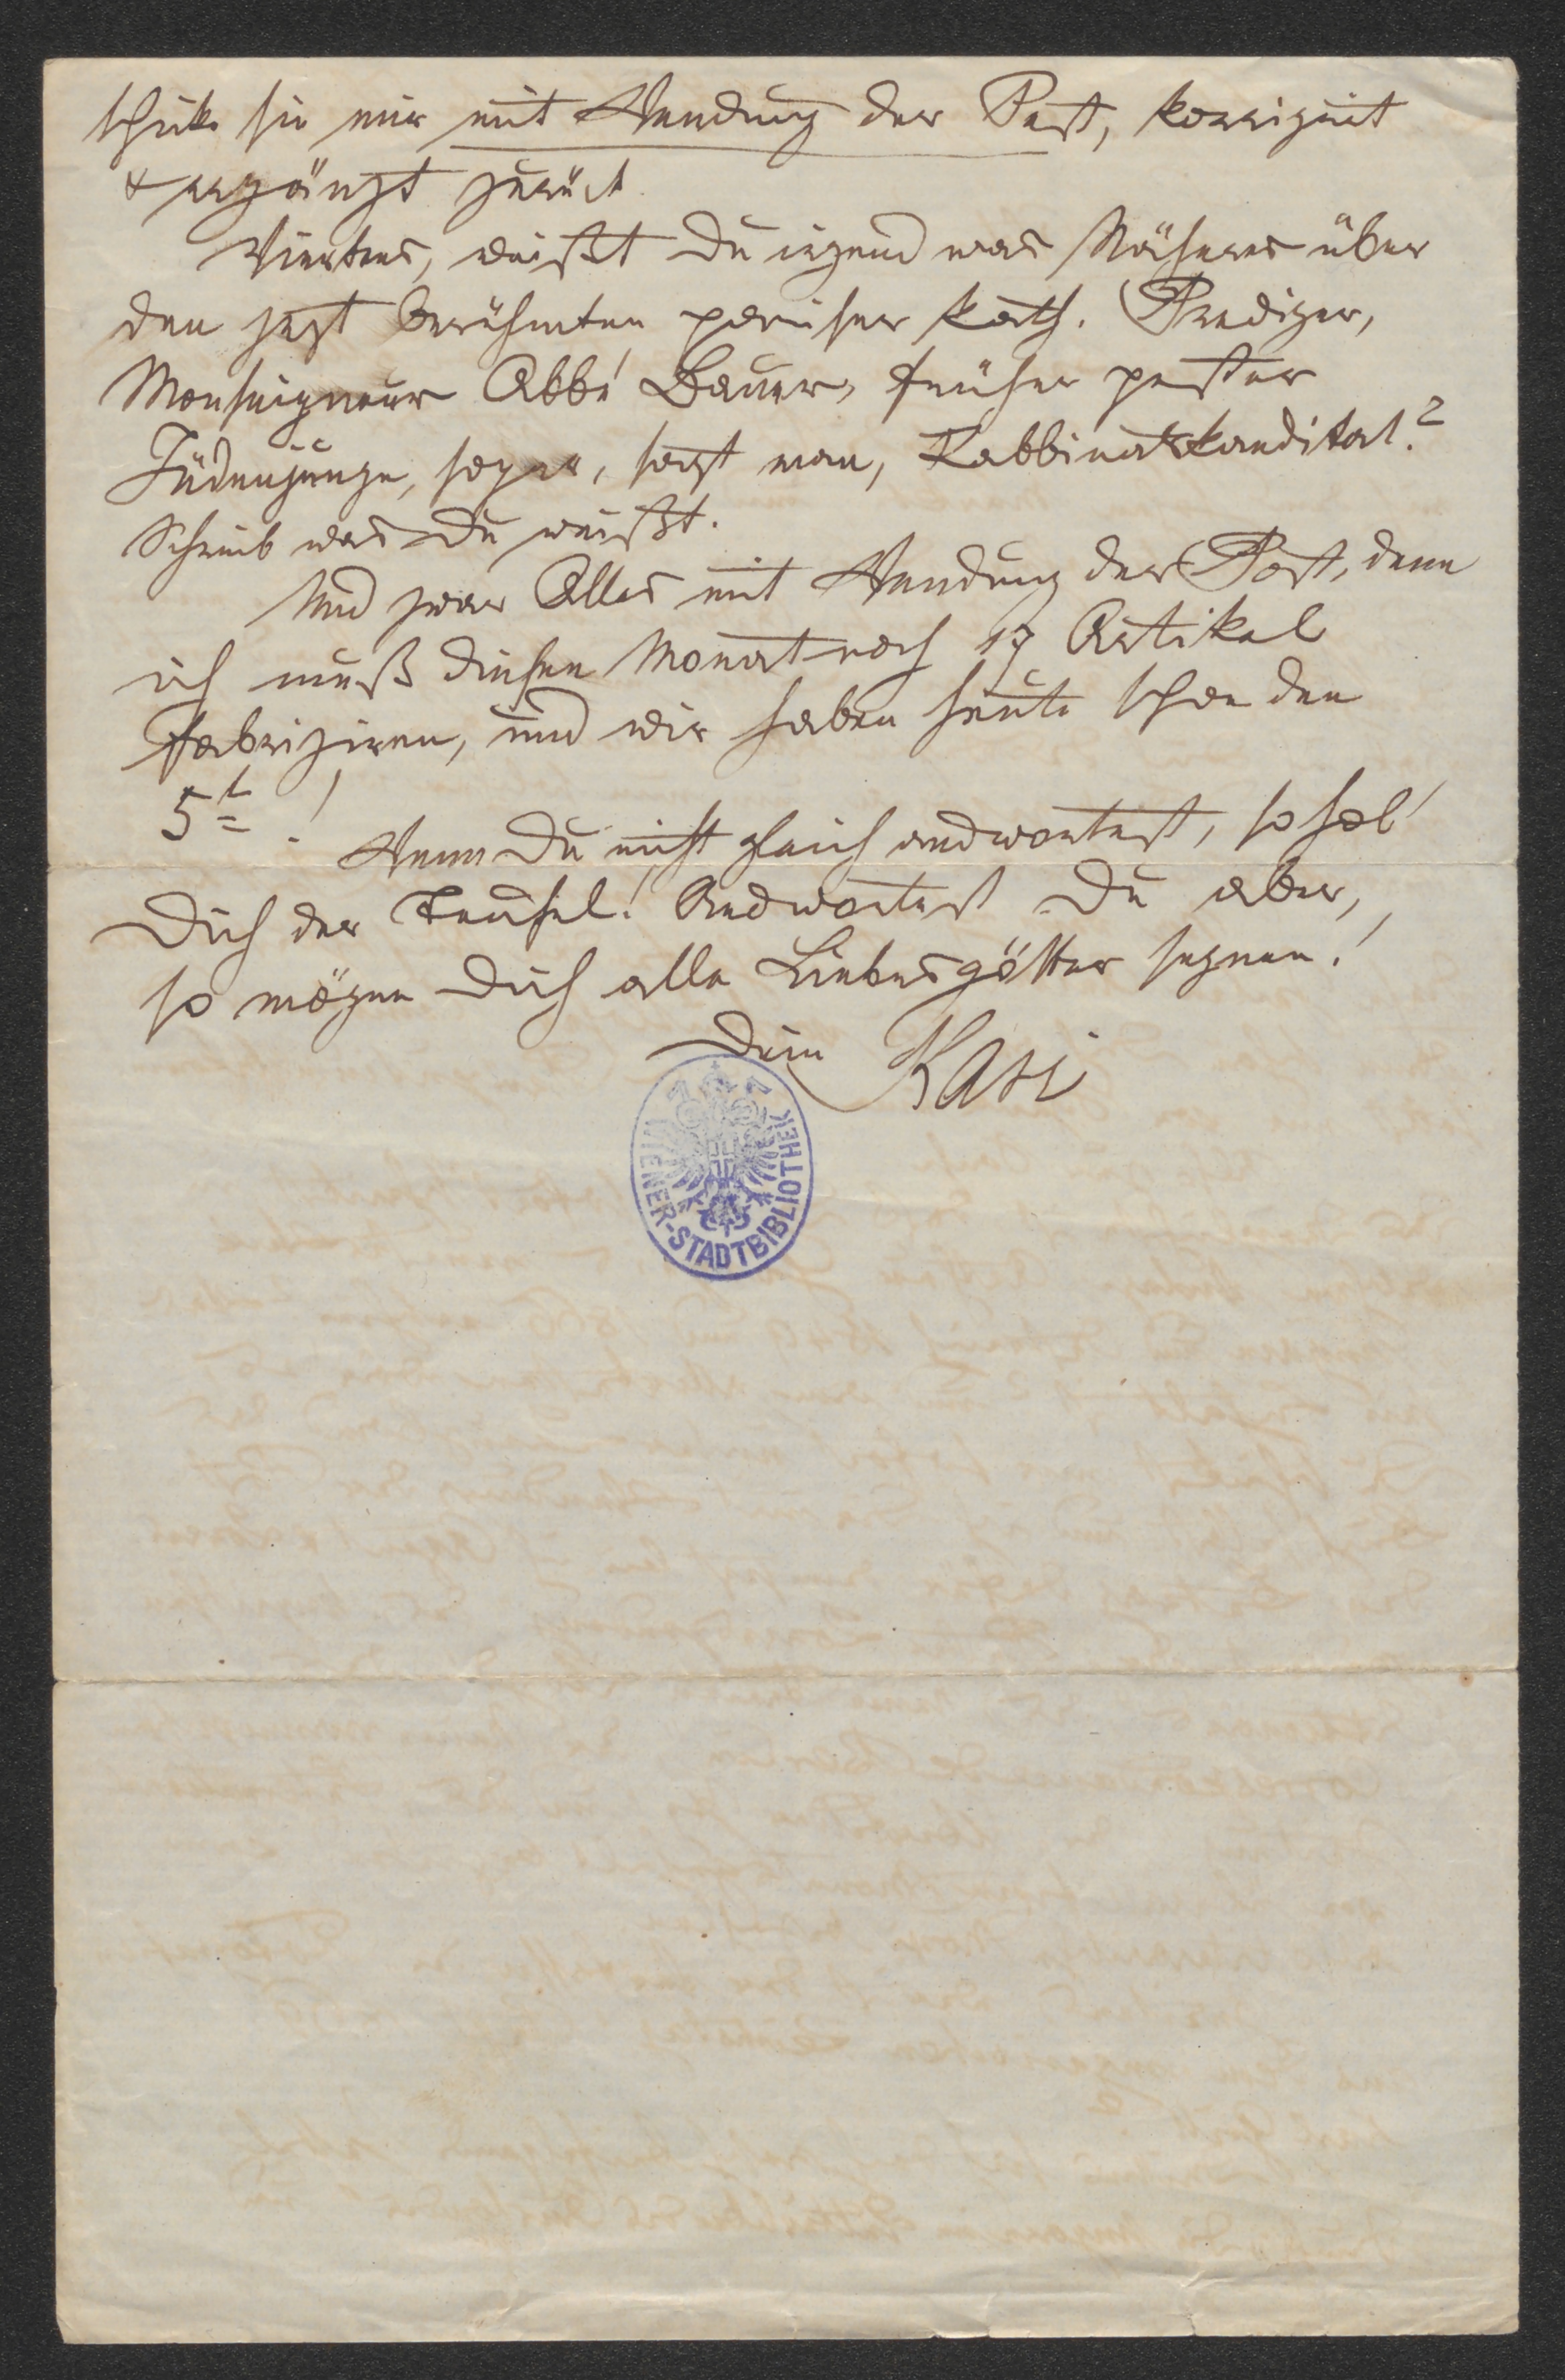 schick sie mir mit Wendung der Post, korrigirt
& ergänzt zurück.
Viertens, weißt Du irgend was Näheres über
den jezt berühmten pariser kath. Prediger,
Monseigneur Abbé Bauer, früher pester
Judenjunge, sogar, sagt man, Rabbinatskanditat?
Schreib was Du weißt.
Und zwar Alles mit Wendung der Post, denn
ich muß diesen Monat noch 17 Artikel
fabriziren, und wir haben heute schon den
5t. !
Wenn Du nicht gleich andwortest, so hol'
Dich der Teufel! Andwortest Du aber,
so mögen Dich alle Liebesgötter segnen!
Dein
WIENER-STADTBIBLIOTHEK